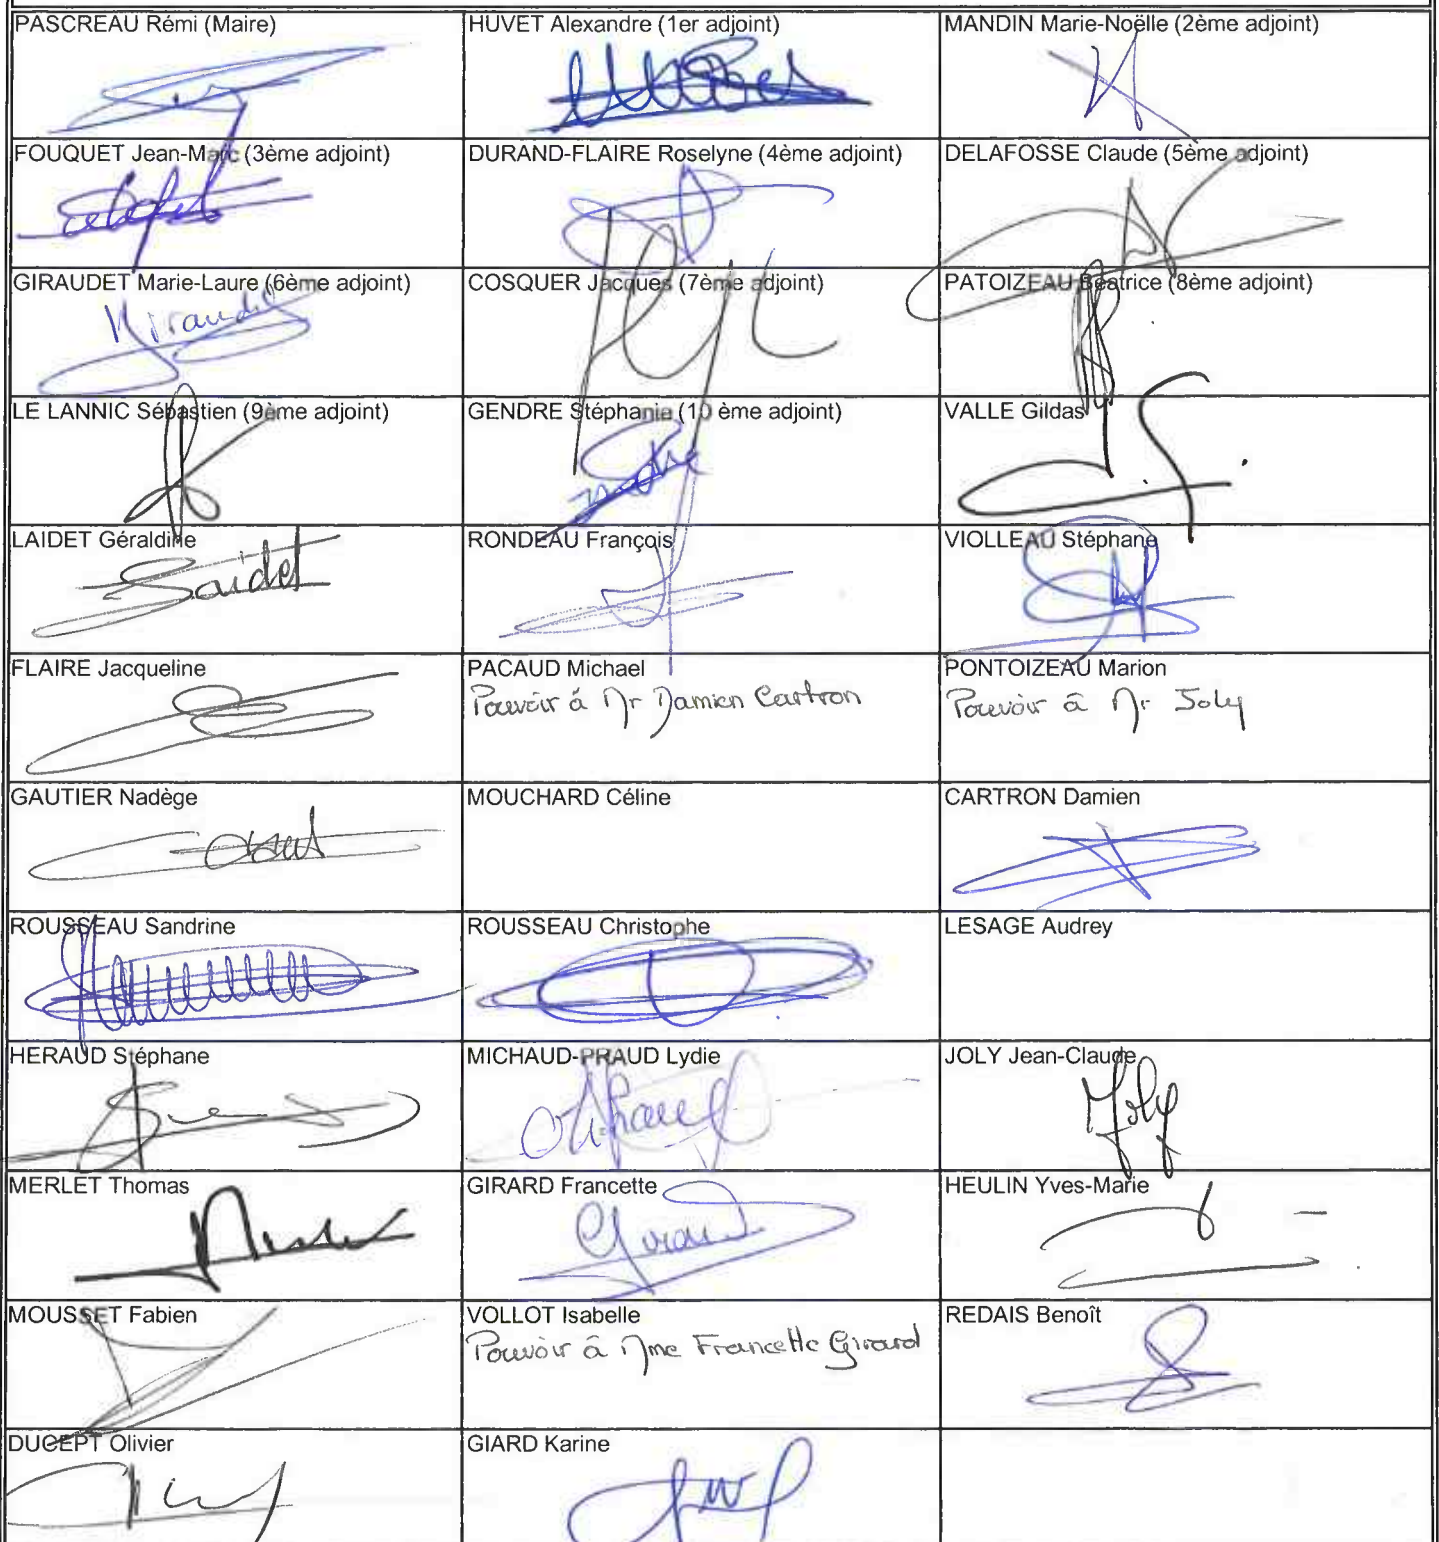 PASCREAU Rémi (Maire)
HUVET Alexandre (1er adjoint)
MANDIN Marie-Noëlle (2ème adjoint)
FOUQUET Jean-Marc (3ème adjoint)
DURAND-FLAIRE Roselyne (4ème adjoint)
DELAFOSSE Claude (5ème adjoint)
GIRAUDET Marie-Laure (6ème adjoint)
COSQUER Jacques (7ème adjoint)
PATOIZEAU Béatrice (8ème adjoint)
LE LANNIC Sébastien (9ème adjoint)
GENDRE Stéphanie (10 ème adjoint)
VALLE Gildas
LAIDET Géraldine
Laidet
RONDEAU François
VIOLLEAU Stéphane
FLAIRE Jacqueline
PACAUD Michael
Pouvoir à Mr Damien Cartron
PONTOIZEAU Marion
Pouvoir à Mr Joly
GAUTIER Nadège
MOUCHARD Céline
CARTRON Damien
ROUSSEAU Sandrine
ROUSSEAU Christophe
LESAGE Audrey
HERAUD Stéphane
MICHAUD-PRAUD Lydie
JOLY Jean-Claude
Joly
MERLET Thomas
GIRARD Francette
Girard
HEULIN Yves-Marie
MOUSSET Fabien
VOLLOT Isabelle
Pouvoir à Mme Francette Girard
REDAIS Benoît
DUCEPT Olivier
GIARD Karine